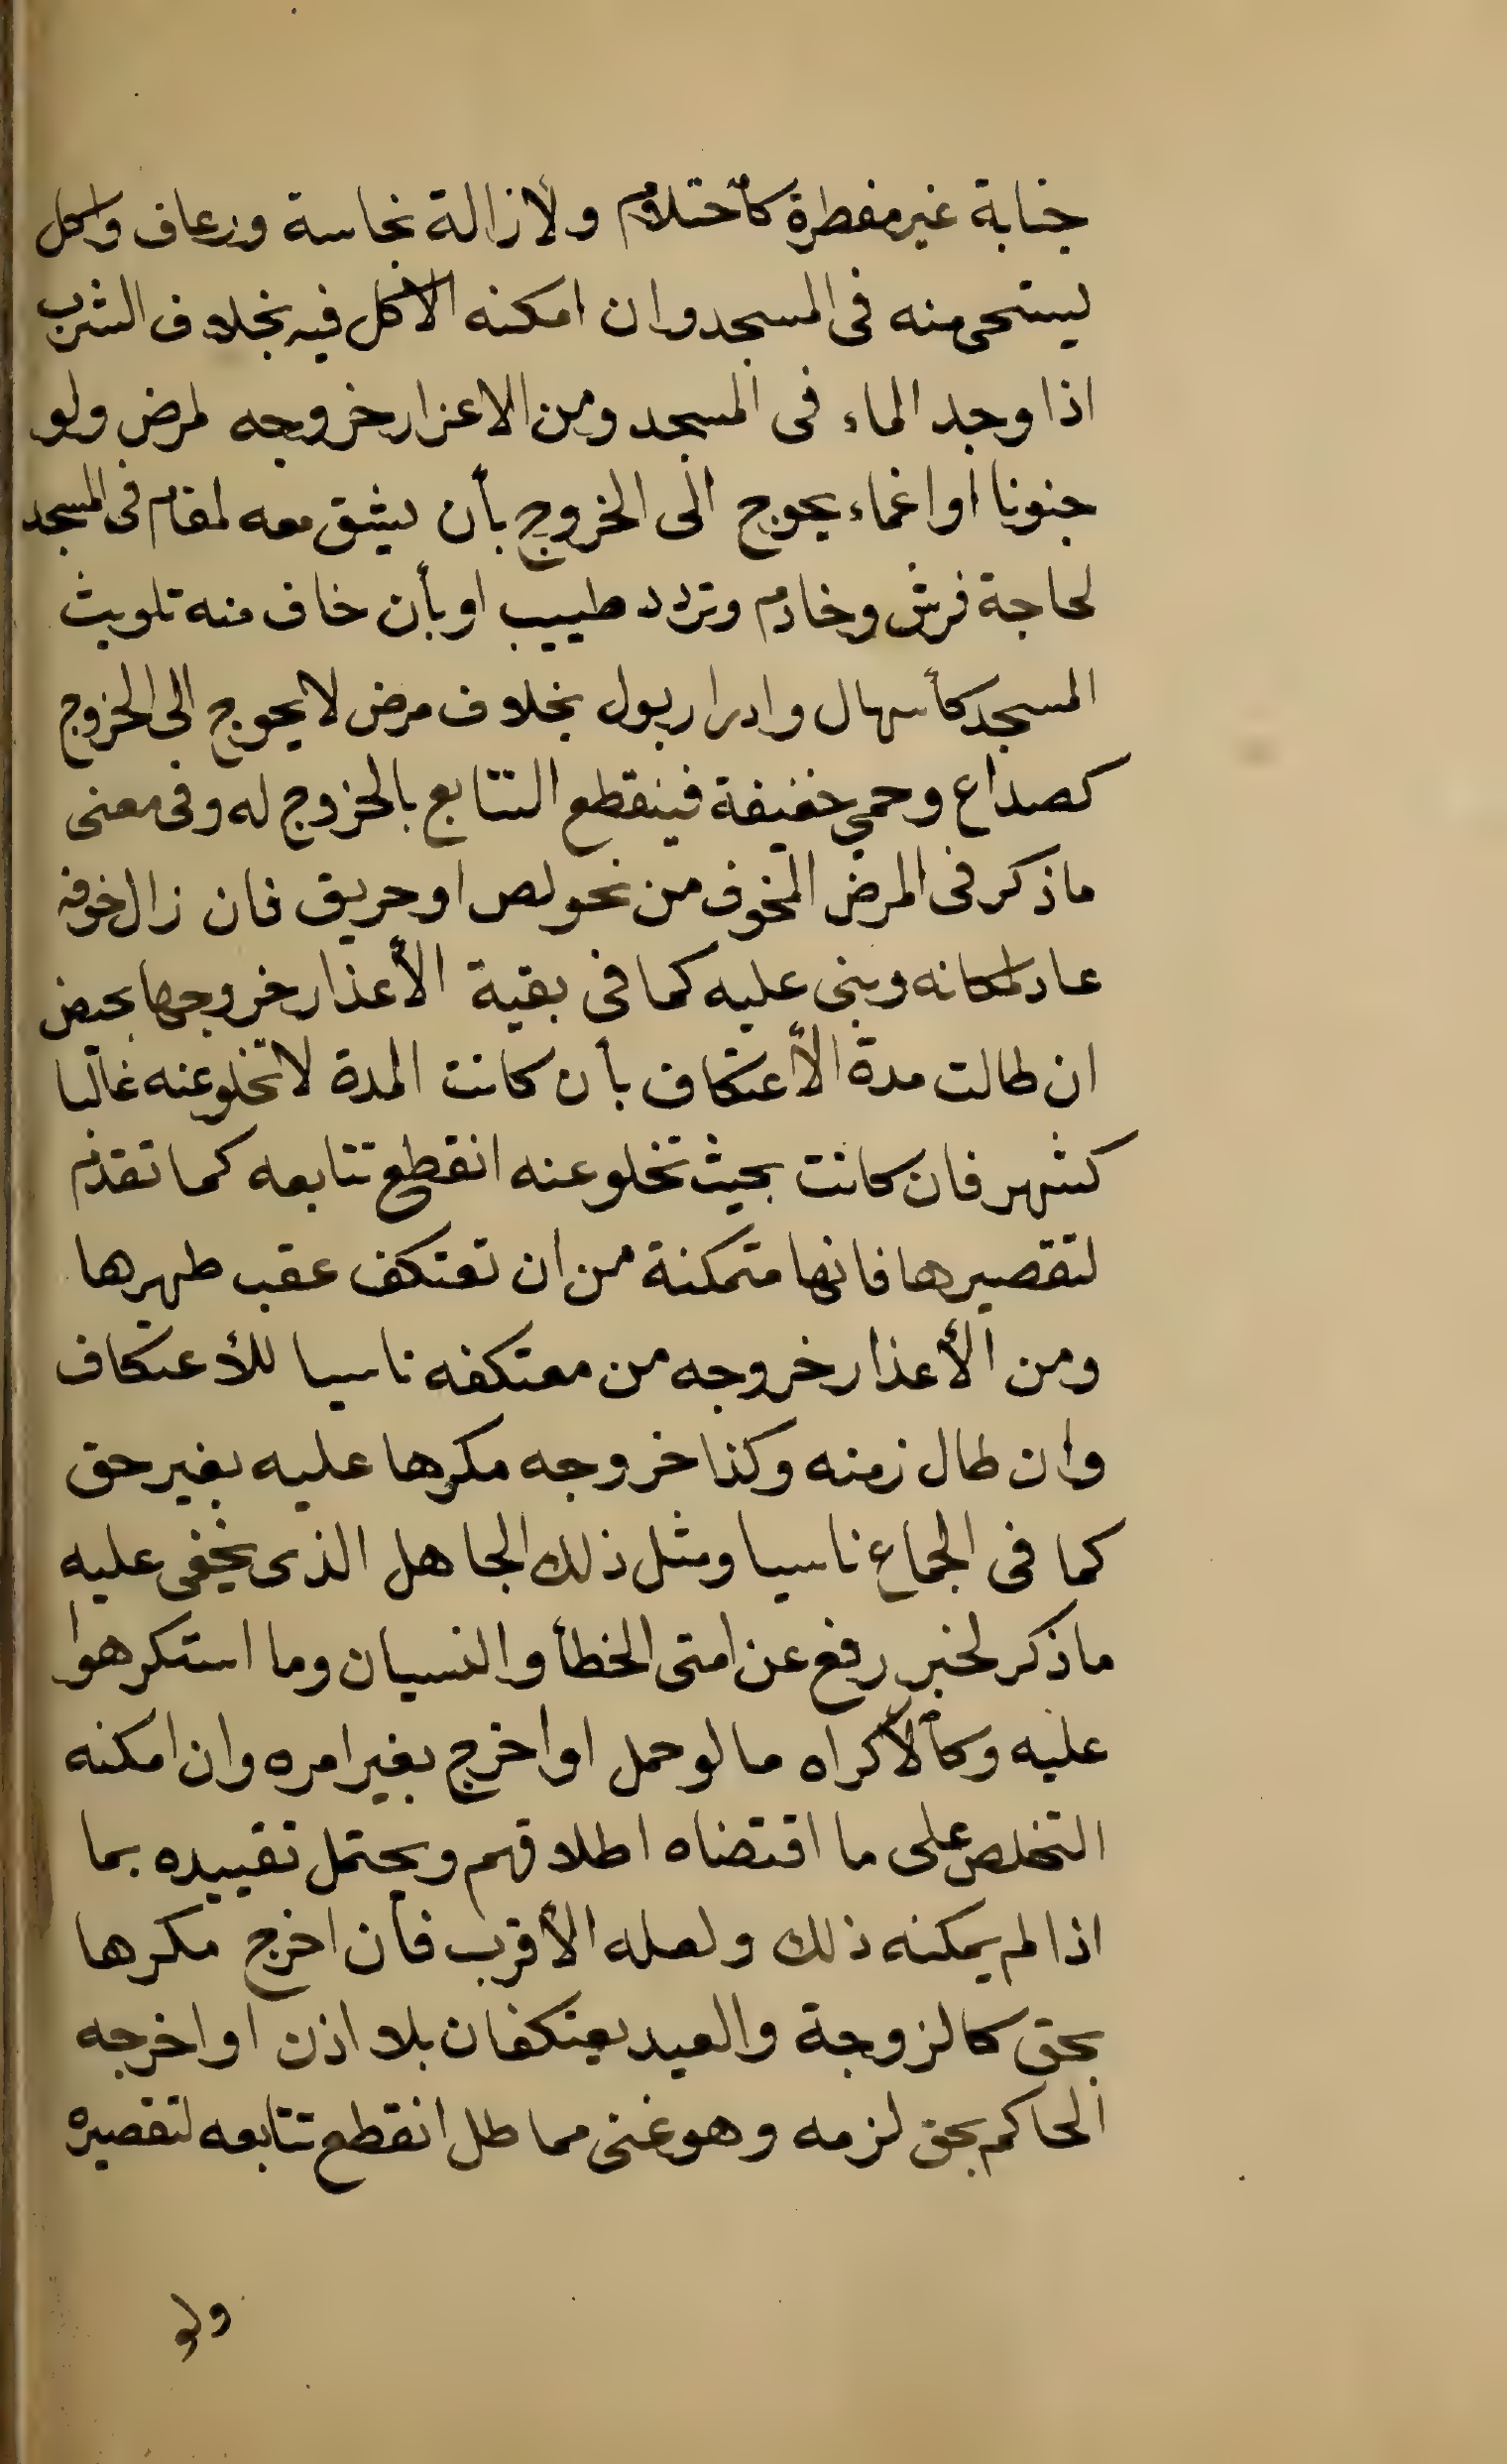 جنابة غير مفطرة كأحتلام ولأزالة نجاسة ورعاف واكل
يستحى منه فى المسجد وان امكنه الاكل فيه بخلاف الشرب
اذا وجد الماء فى المسجد ومن الاعزار خروجه لمرض ولو
جنونا او اغماء يحوج الى الخروج بأن يشق معه لمقام فى المسجد
لحاجة فرش وخادم وتردد طبيب او بأن خاف منه تلويث
المسجد كأسهال وادرار بول بخلاف مرض لا يحوج الى الخروج
كصداع وحمى خفيفة فينقطع التتابع بالخروج له وفى معنى
ماذكر فى المرض المخوف من نحو لص او حريق فان زال خوفه
عاد لمكانه وبنى عليه كما فى بقية الأعذار خروجها بحيض
ان طالت مدة الأعتكاف بأن كانت المدة لا تخلو عنه غالبا
كشهر فان كانت بحيث تخلو عنه انقطع تتابعه كما تقدم
لتقصيرها فانها متمكنة من ان تعتكف عقب طهرها
ومن الأعذار خروجه من معتكفه ناسيا للأعتكاف
وان طال زمنه وكذا خروجه مكرها عليه بغير حق
كما فى الجماع ناسيا ومثل ذلك الجاهل الذى يخفى عليه
ماذكر لخبر رفع عن امتى الخطأ والنسيان وما استكرهوا
عليه وكالأكراه ما لو حمل او اخرج بغير امره وان امكنه
التخلص على ما اقتضاه اطلاقهم ويحتمل تقييده بما
اذا لم يمكنه ذلك ولعله الأقرب فأن اخرج مكرها
بحق كالزوجة والعبد يعتكفان بلا اذن او اخرجه
الحاكم بحق لزمه وهو غنى مماطل انقطع تتابعه لتقصيره
ولو